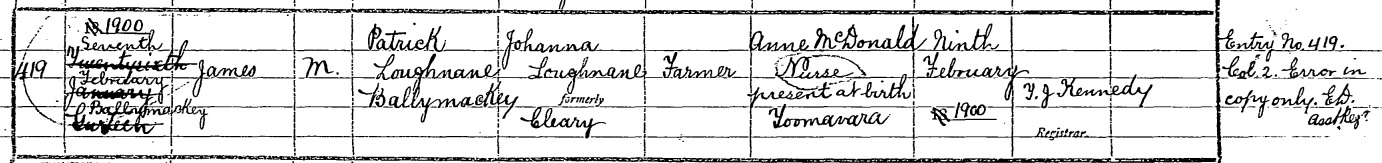 419
1900
Seventh
Twentysixth
February
January
Ballymackey
James
M.
Patrick
Loughnane
Ballymackey
Johanna
Loughnane
formerly
Cleary
Farmer
Anne McDonald
Nurse
present at birth
Toomavara
Ninth
February
1900
T. J Kennedy
Registrar.
Entry No. 419.
Col. 2. Error in
copy only. E.D.